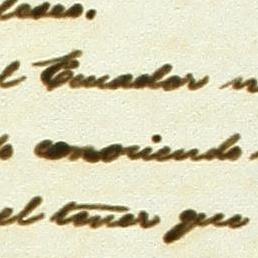 l Ecuador
conociendo
el tener que